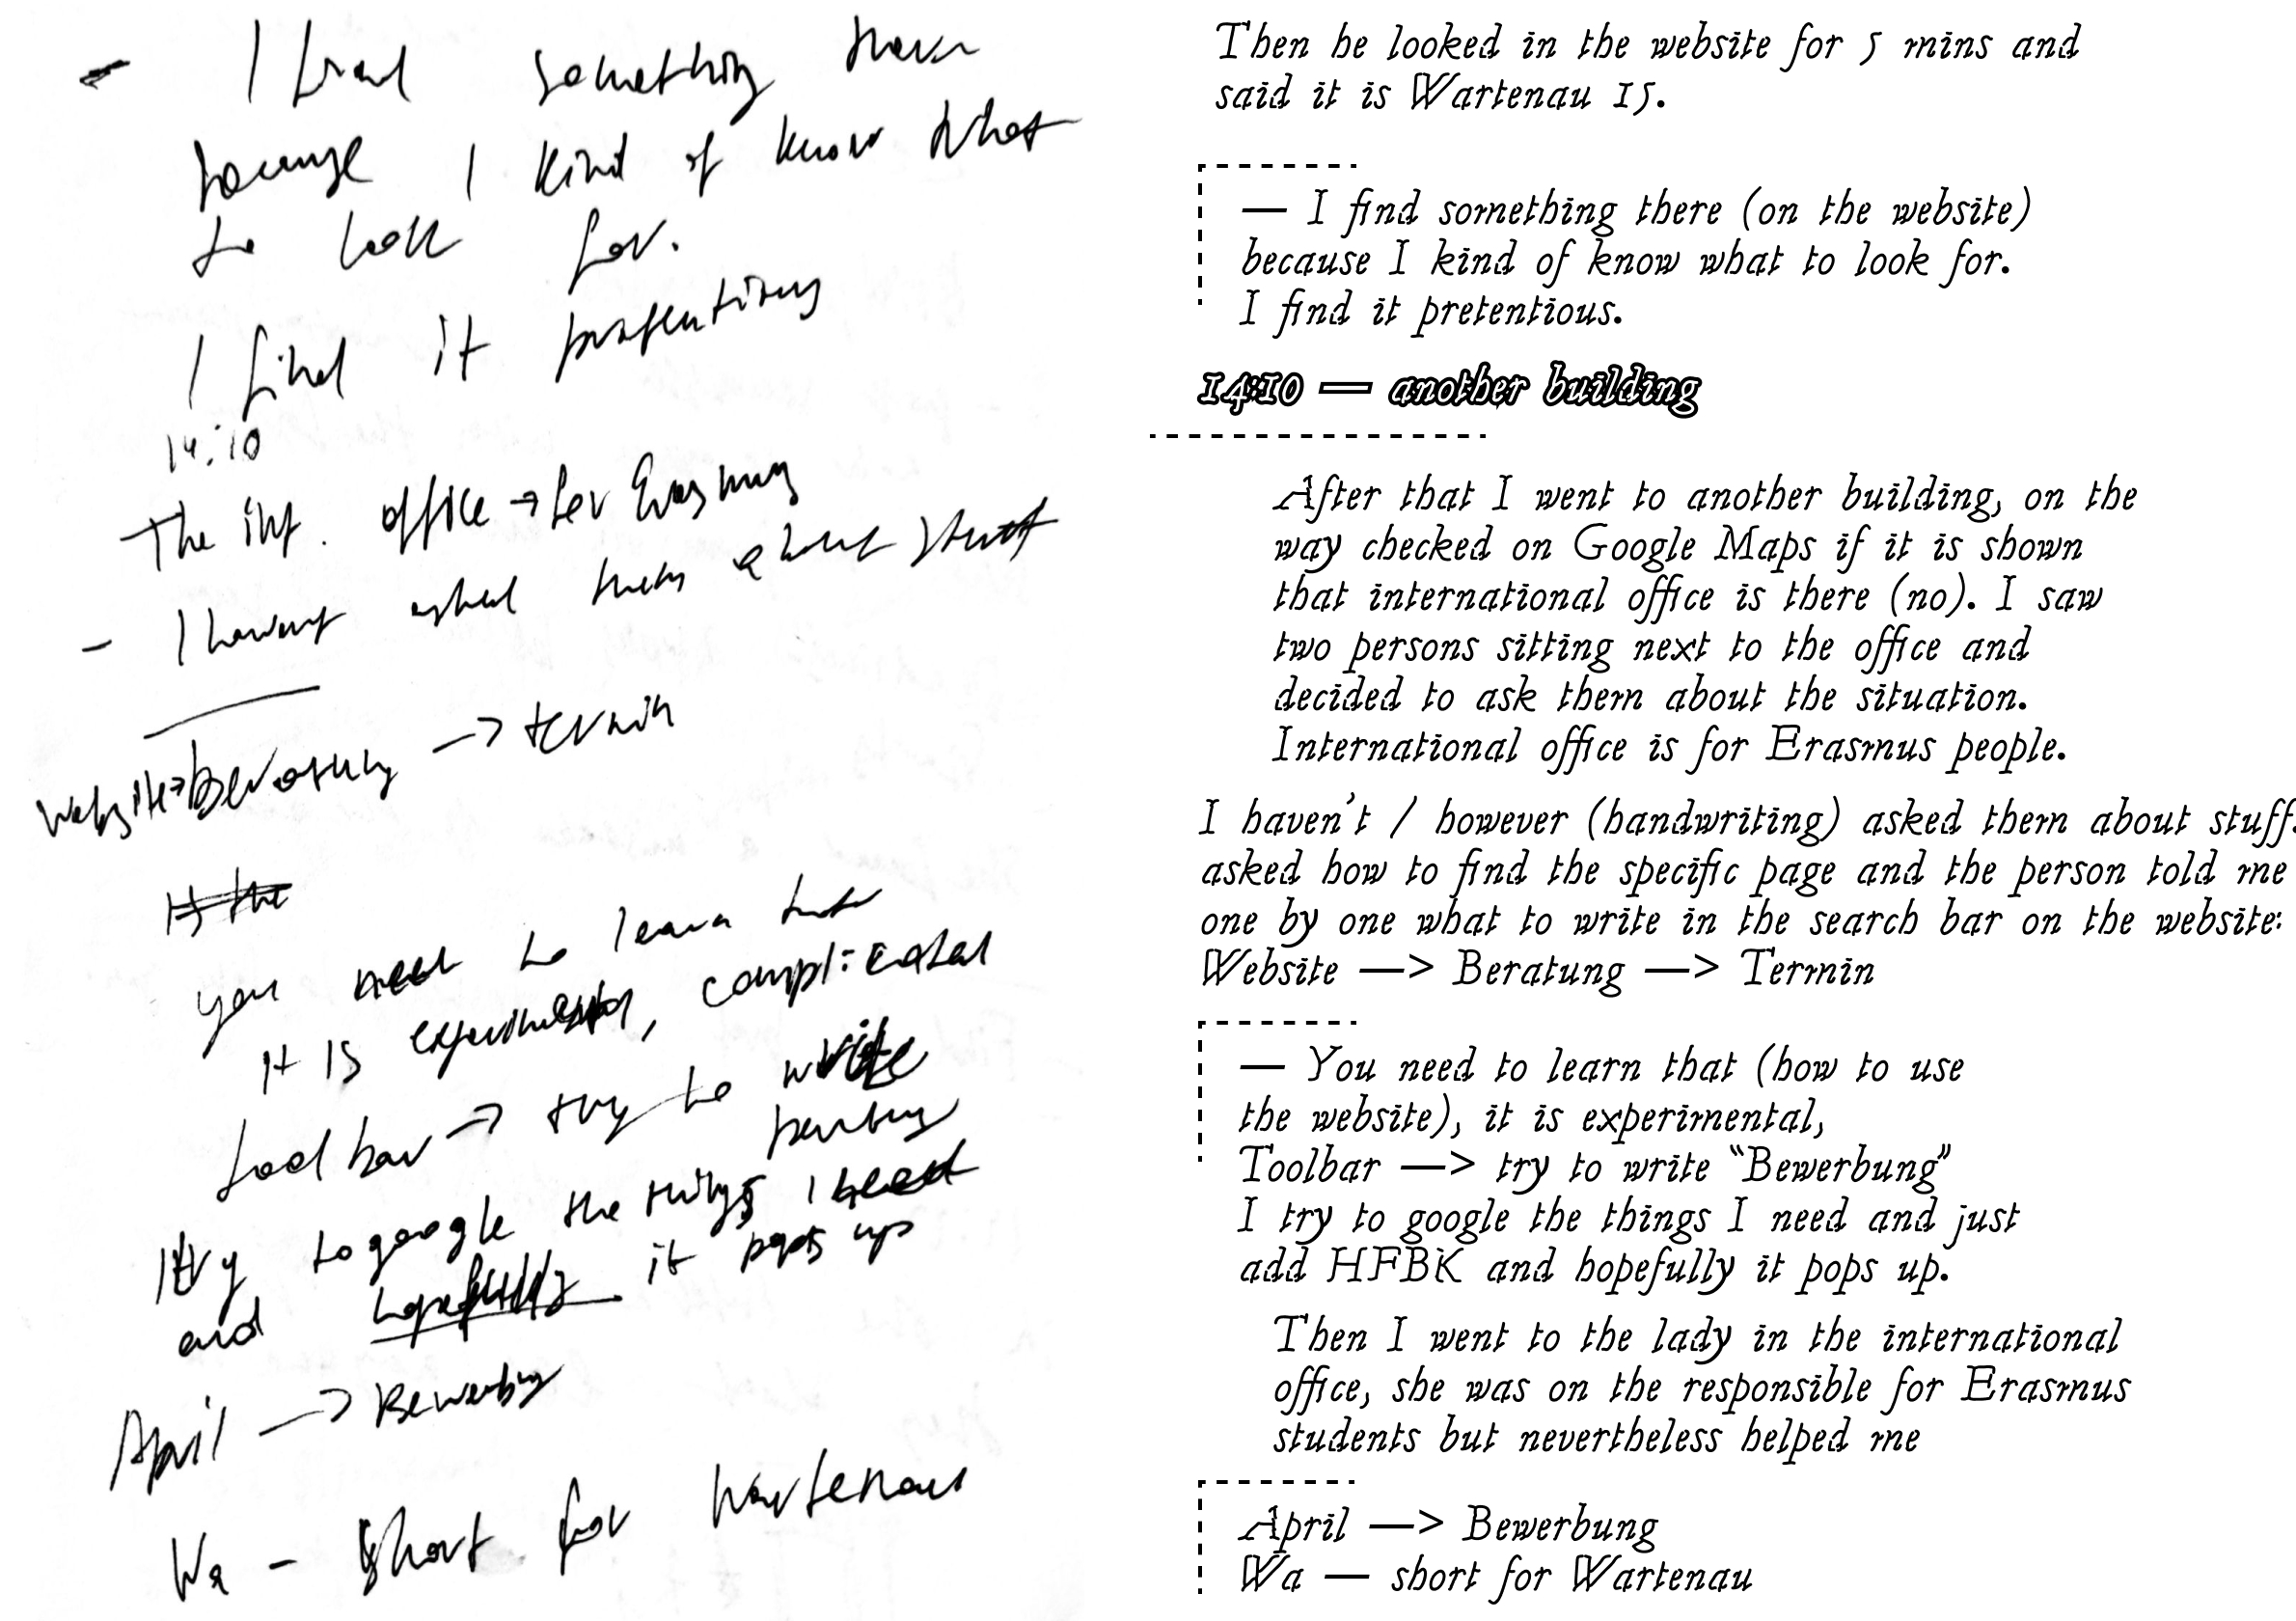 - I find something there
because I kind of know what
to look for.
I find it pretentious
14:10
The int. office → for Erasmus
- I havent asked them about stuff
Website → Beratung → termin
If the
you need to learn that
it is experimental, complicated
tool bar → try to write
I try to google the things I need
and hopefully it pops up
April → Bewerbung
Wa - short for Wartenau
Then he looked in the website for 5 mins and
said it is Wartenau 15.
— I find something there (on the website)
because I kind of know what to look for.
I find it pretentious.
14:10 — another building
After that I went to another building, on the
way checked on Google Maps if it is shown
that international office is there (no). I saw
two persons sitting next to the office and
decided to ask them about the situation.
International office is for Erasmus people.
I haven't / however (handwriting) asked them about stuff.
asked how to find the specific page and the person told me
one by one what to write in the search bar on the website:
Website —> Beratung —> Termin
— You need to learn that (how to use
the website), it is experimental,
Toolbar —> try to write “Bewerbung”
I try to google the things I need and just
add HFBK and hopefully it pops up.
Then I went to the lady in the international
office, she was on the responsible for Erasmus
students but nevertheless helped me
April —> Bewerbung
Wa — short for Wartenau